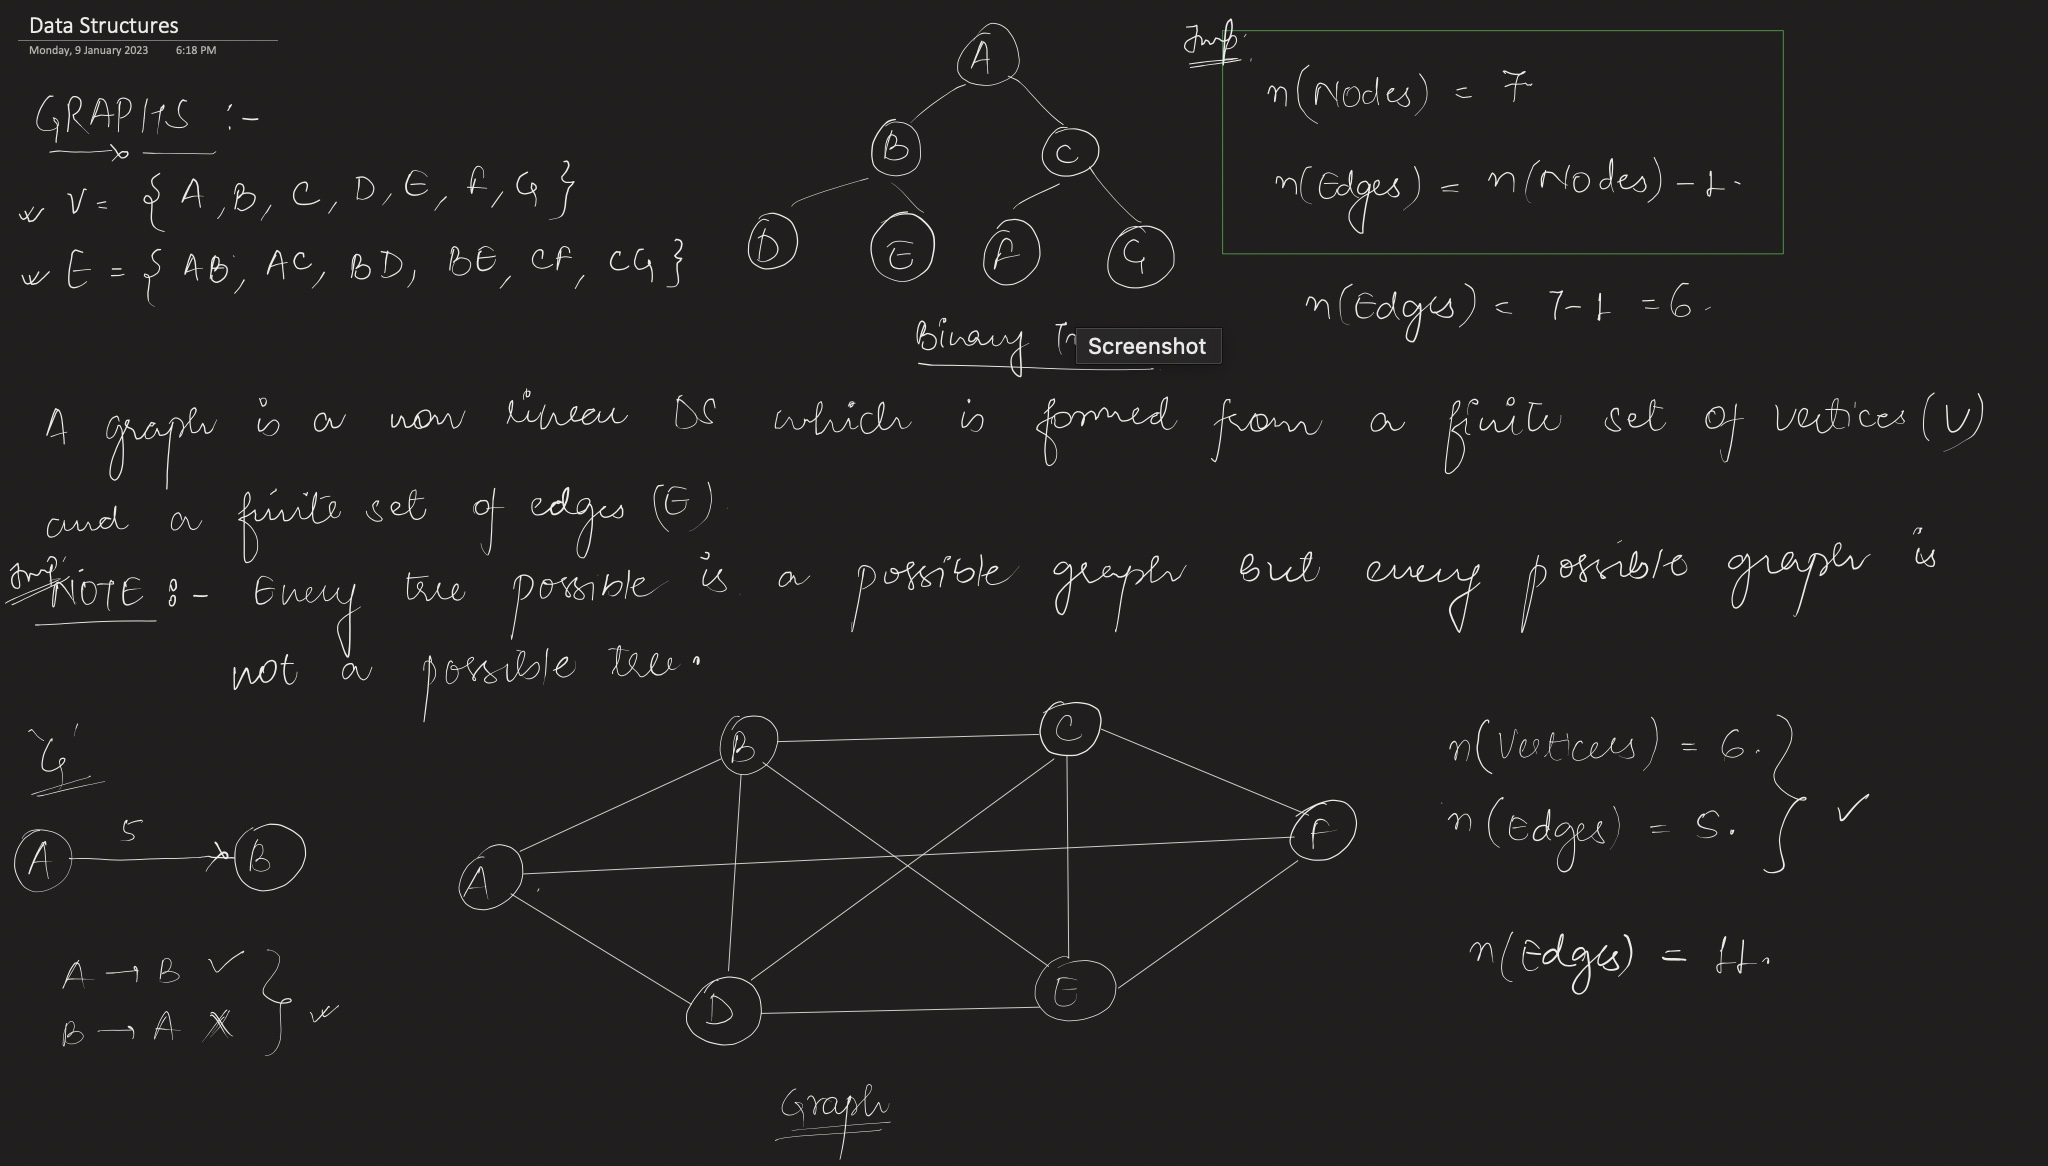 Data Structures
Monday, 9 January 2023 6:18 PM
GRAPHS :-
V = { A, B, C, D, E, F, G }
E = { AB, AC, BD, BE, CF, CG }
A
B C
D E F G
Binary
Screenshot
Imp.
n(Nodes) = 7
n(Edges) = n(Nodes) - 1.
n(Edges) = 7-1 = 6.
A graph is a non linear DS which is formed from a finite set of vertices (V)
and a finite set of edges (E).
Imp.
NOTE :- Every tree possible is a possible graph but every possible graph is
not a possible tree.
'G'
A 5 B
A → B ✓
B → A X
B C
A F
D E
Graph
n(Vertices) = 6.
n(Edges) = 5.
n(Edges) = 11.